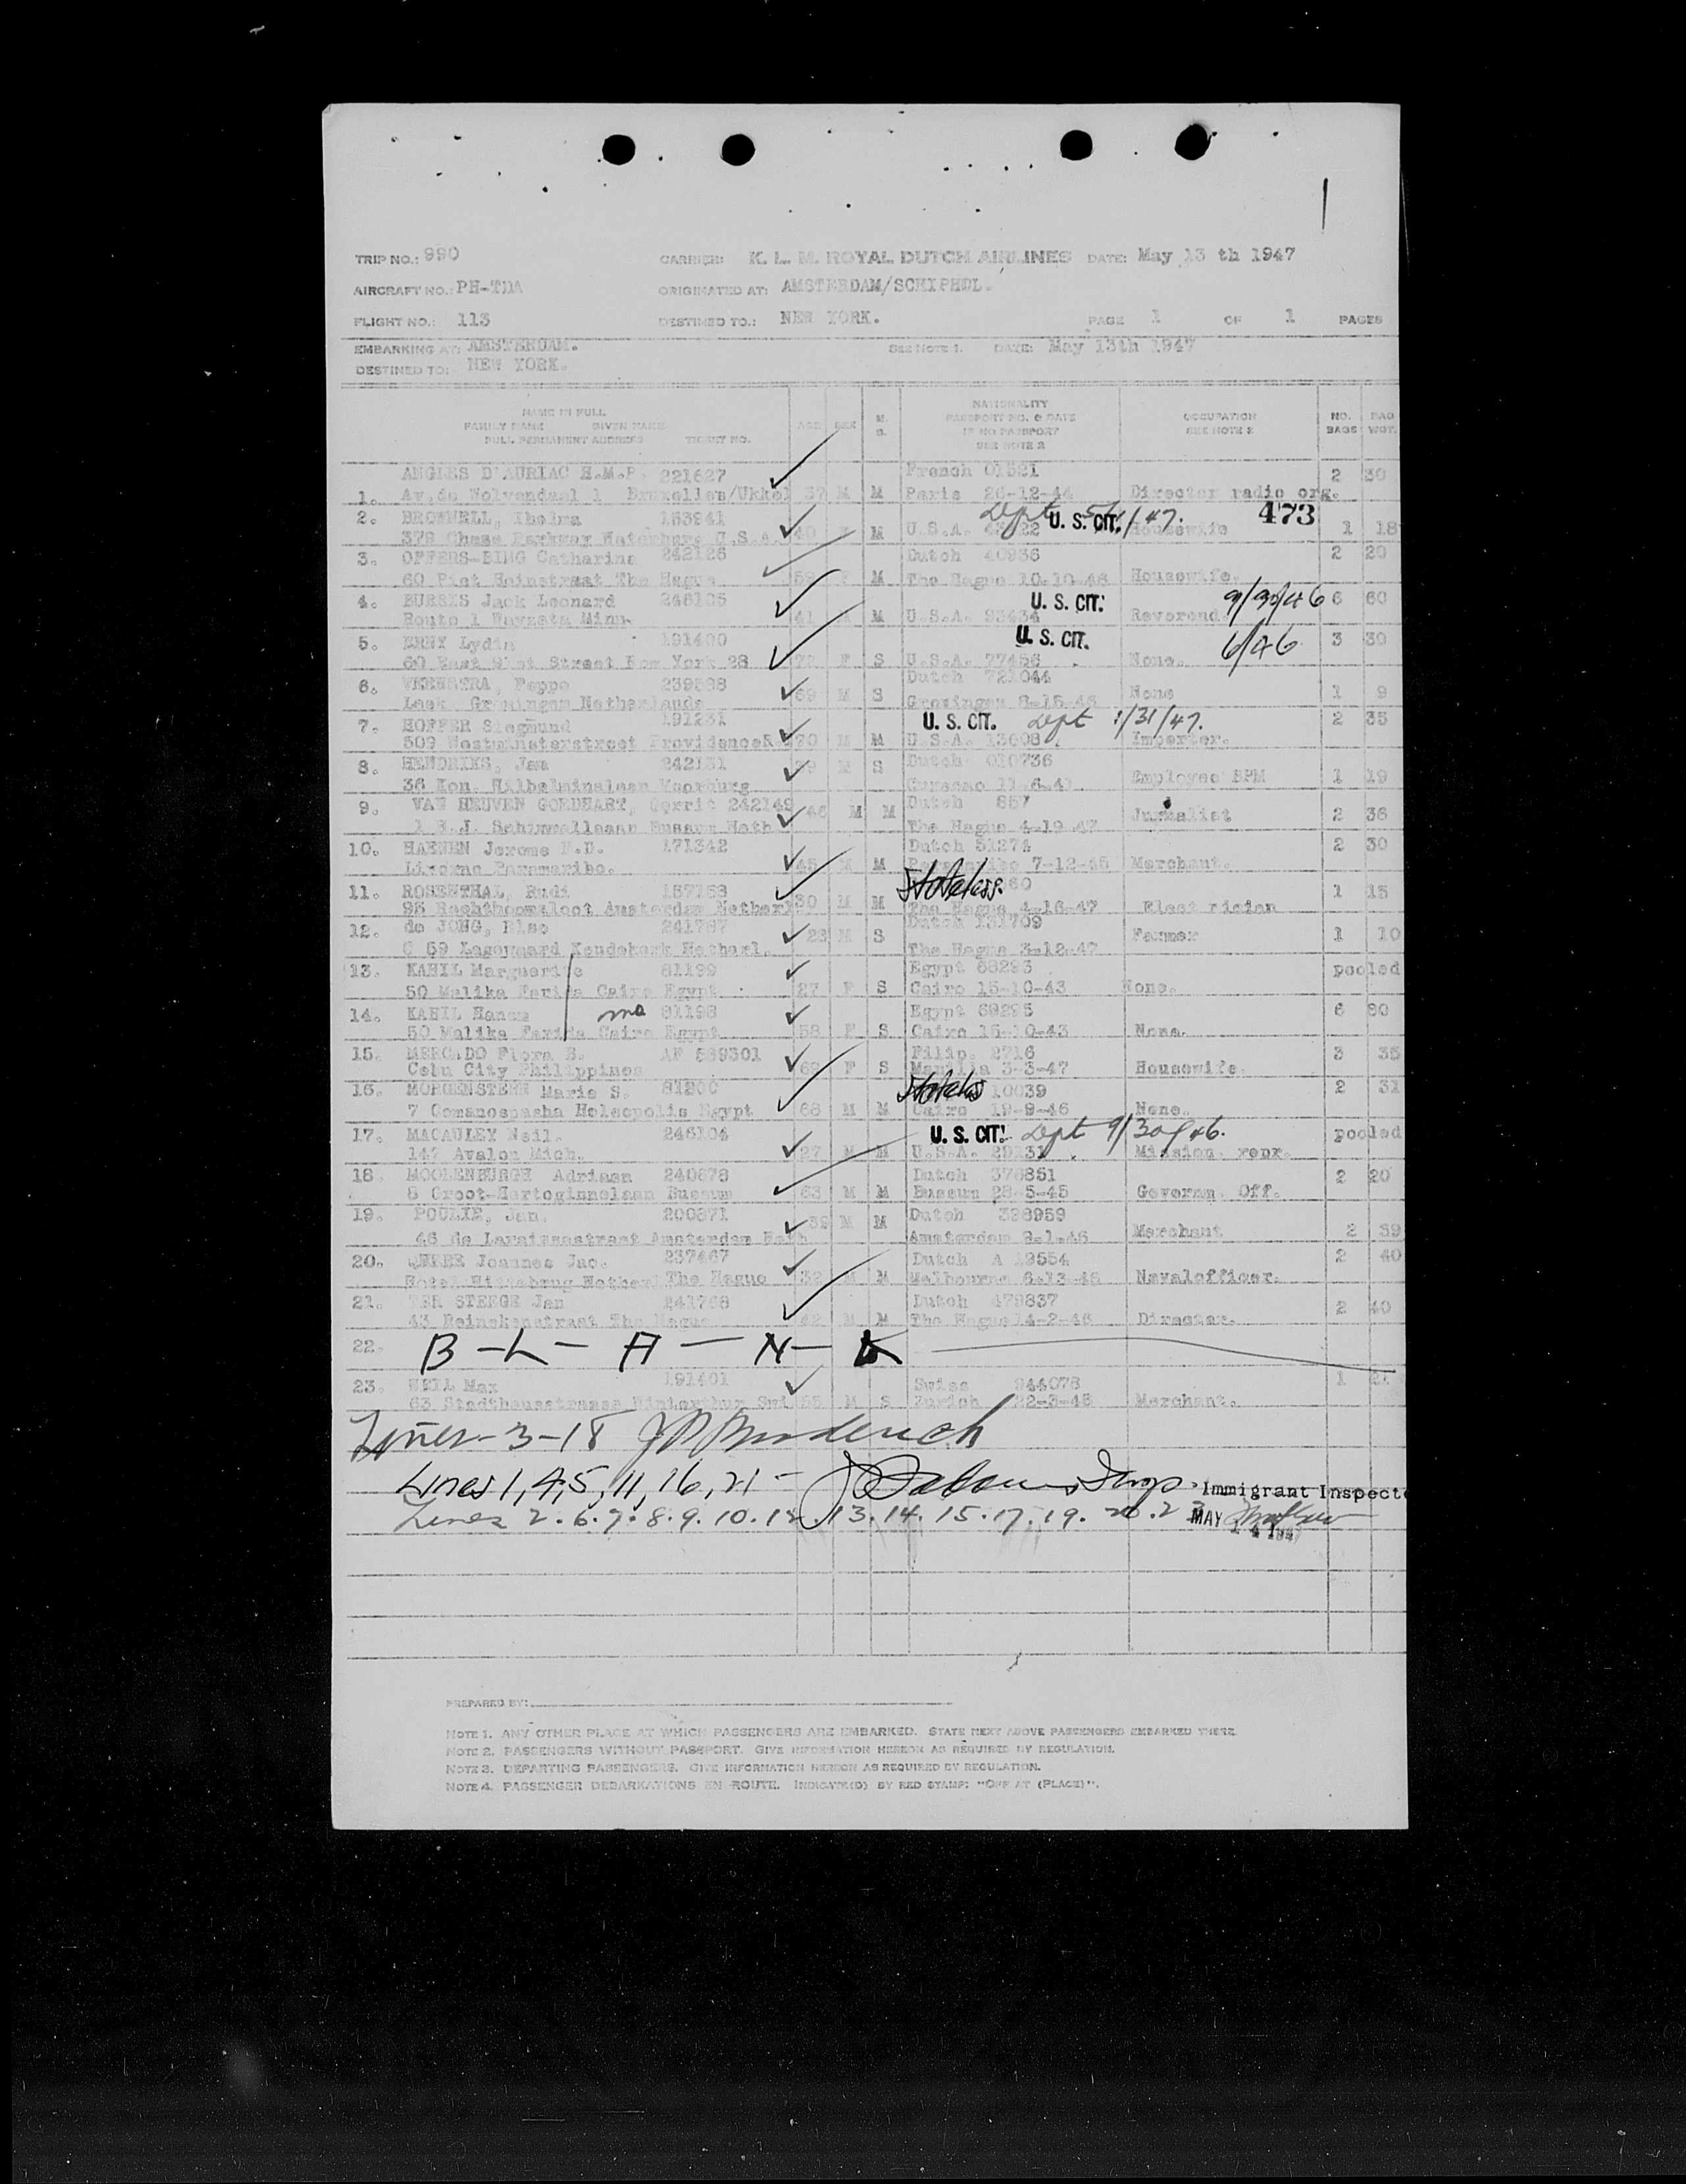 TRIP NO.: 990 CARRIER: K. L. M. ROYAL DUTCH AIRLINES DATE: May 13 th 1947
AIRCRAFT NO.: PH-TDA ORIGINATED AT: AMSTERDAM/SCHIPHOL.
FLIGHT NO.: 113 DESTINED TO.: NEW YORK. PAGE 1 OF 1 PAGES
EMBARKING AT: AMSTERDAM. SEE NOTE 1. DATE: May 13th 1947
DESTINED TO: NEW YORK.
NAME IN FULL
FAMILY NAME GIVEN NAME
FULL PERMANENT ADDRESS TICKET NO.
AGE SEX M. S.
NATIONALITY
PASSPORT NO. & DATE
IF NO PASSPORT
SEE NOTE 2
OCCUPATION
SEE NOTE 3
NO. BAGS
BAG WGT.
ANGLES D'AURIAC H.M.P. 221627 French 01521 2 30
1. Av.de Wolvendael 1 Bruxelles/Ukkel 37 M M Paris 26-12-44 Director radio org.
2. BROWNELL, Thelma 153941 Dept U. S. CIT. /47. 473
Chase Parkway U.S.A. 40 F M U.S.A. Housewife 1 18
3. OFFERS-BING Catharina 242126 Dutch 40936 2 20
60 Piet Heinstraat The Hague F M The Hague 10-10-46 Housewife.
4. Jack Leonard 246105 U. S. CIT. 9/30/46 6 60
Route 1 Wayzata Minn. 41 M M U.S.A. 93434 Reverend.
5. ERNY Lydia 191400 U. S. CIT. 6/46 3 30
60 East 91st Street New York 28 F S U.S.A. 77456 None.
6. VEENSTRA, Feppe 239588 Dutch 721044
Leek Groningen Netherlands 69 M S Groningen None 1 9
7. HOFFER Siegmund 191231 U. S. CIT. Dept 1/31/47. 2 35
509 Westminsterstreet Providence 70 M M U.S.A. 13608 Importer.
8. HENDRIKS, Jan 242131 Dutch 010736
36 Kon. Wilhelminalaan Voorburg M S Curacao 11-6-41 Employee BPM 1 19
9. VAN HEUVEN GOEDHART, Gerrit 242149 Dutch 857
46 M M The Hague 4-19-47 Jurnalist 2 36
10. HAENEN Jerome 171342 Dutch 51274 2 30
Paramaribo. 45 M M Paramaribo 7-12-45 Merchant.
11. ROSENTHAL, Rudi 157158 Stateless 1 15
Amsterdam 30 M M The Hague 4-16-47 Electrician
12. de JONG, 241767 Dutch 131709
C 59 Lagewaard Koudekerk Netherl. 23 M S The Hague 3-12-47 Farmer 1 10
13. KAHIL Marguerite 81199 Egypt 68293 pooled
50 Malika Farida Cairo Egypt 27 F S Cairo 15-10-43 None.
14. KAHIL 81198 Egypt 69295 6 80
50 Malika Farida Cairo Egypt 58 F S Cairo 15-10-43 None.
15. MERCADO Flora B. AF 589301 Filip. 2716 3 35
Cebu City Philippines F S Manilla 3-3-47 Housewife.
16. MORGENSTERN Marie S. 81200 Stateless 10039 2 31
7 Egypt 68 M M Cairo 19-9-46 None.
17. MACAULEY Neil. 246104 U. S. CIT. Dept 9/30/46. pooled
147 Avalon Mich. 27 M M U.S.A. 29131 Mission.
18. MOOLENBURGH Adriaan 240678 Dutch 376851 2 20
8 Groot-Hertoginnelaan Bussum 63 M M Bussum 28-5-45 Governm. Off.
19. POULIE, Jan. 200871 Dutch 328959
46 de Lairessestraat Amsterdam 39 M M Amsterdam Merchant 2 39
20. Joannes Jac. 237467 Dutch A 19554 2 40
Hotel Wittebrug The Hague 32 M M Melbourne 6-13-46 Navalofficer.
21. TER STEEGE Jan 241768 Dutch 479837 2 40
43 Reinkenstraat The Hague 42 M M The Hague 14-2-46 Director.
22. B - L - A - N - K
23. WEIL Max 191401 Swiss 944078 1
63 Stadthausstrasse Winterthur 55 M S Zurich 22-3-46 Merchant.
Lines - 3-18
Lines 1, 4, 5, 11, 16, 21 - Immigrant Inspect
Lines 2. 6. 7. 8. 9. 10. 12. 13. 14. 15. 17. 19. 20. 23 MAY 14 1947
PREPARED BY:
NOTE 1. ANY OTHER PLACE AT WHICH PASSENGERS ARE EMBARKED. STATE NEXT ABOVE PASSENGERS EMBARKED THERE.
NOTE 2. PASSENGERS WITHOUT PASSPORT. GIVE INFORMATION HEREON AS REQUIRED BY REGULATION.
NOTE 3. DEPARTING PASSENGERS. GIVE INFORMATION HEREON AS REQUIRED BY REGULATION.
NOTE 4. PASSENGER DEBARKATIONS EN ROUTE. INDICATE(D) BY RED STAMP: "OFF AT (PLACE)".